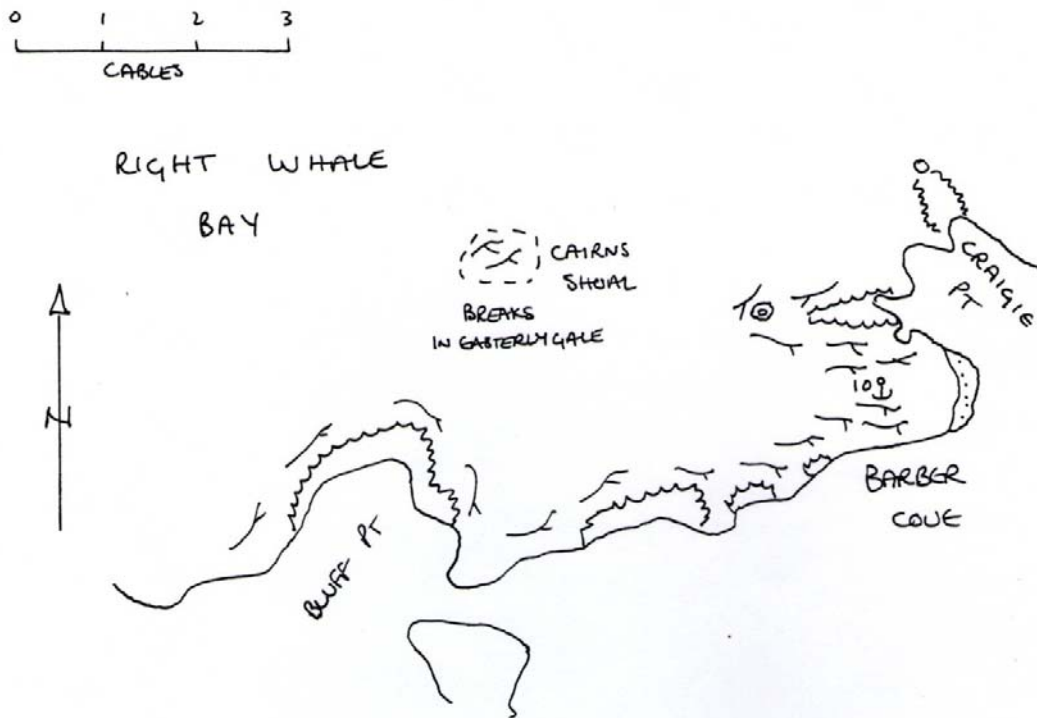 0 1 2 3
CABLES
RIGHT WHALE
BAY
CAIRNS
SHOAL
BREAKS
IN EASTERLY GALE
CRAIGIE
PT
10
N
BARBER
COVE
BLUFF PT